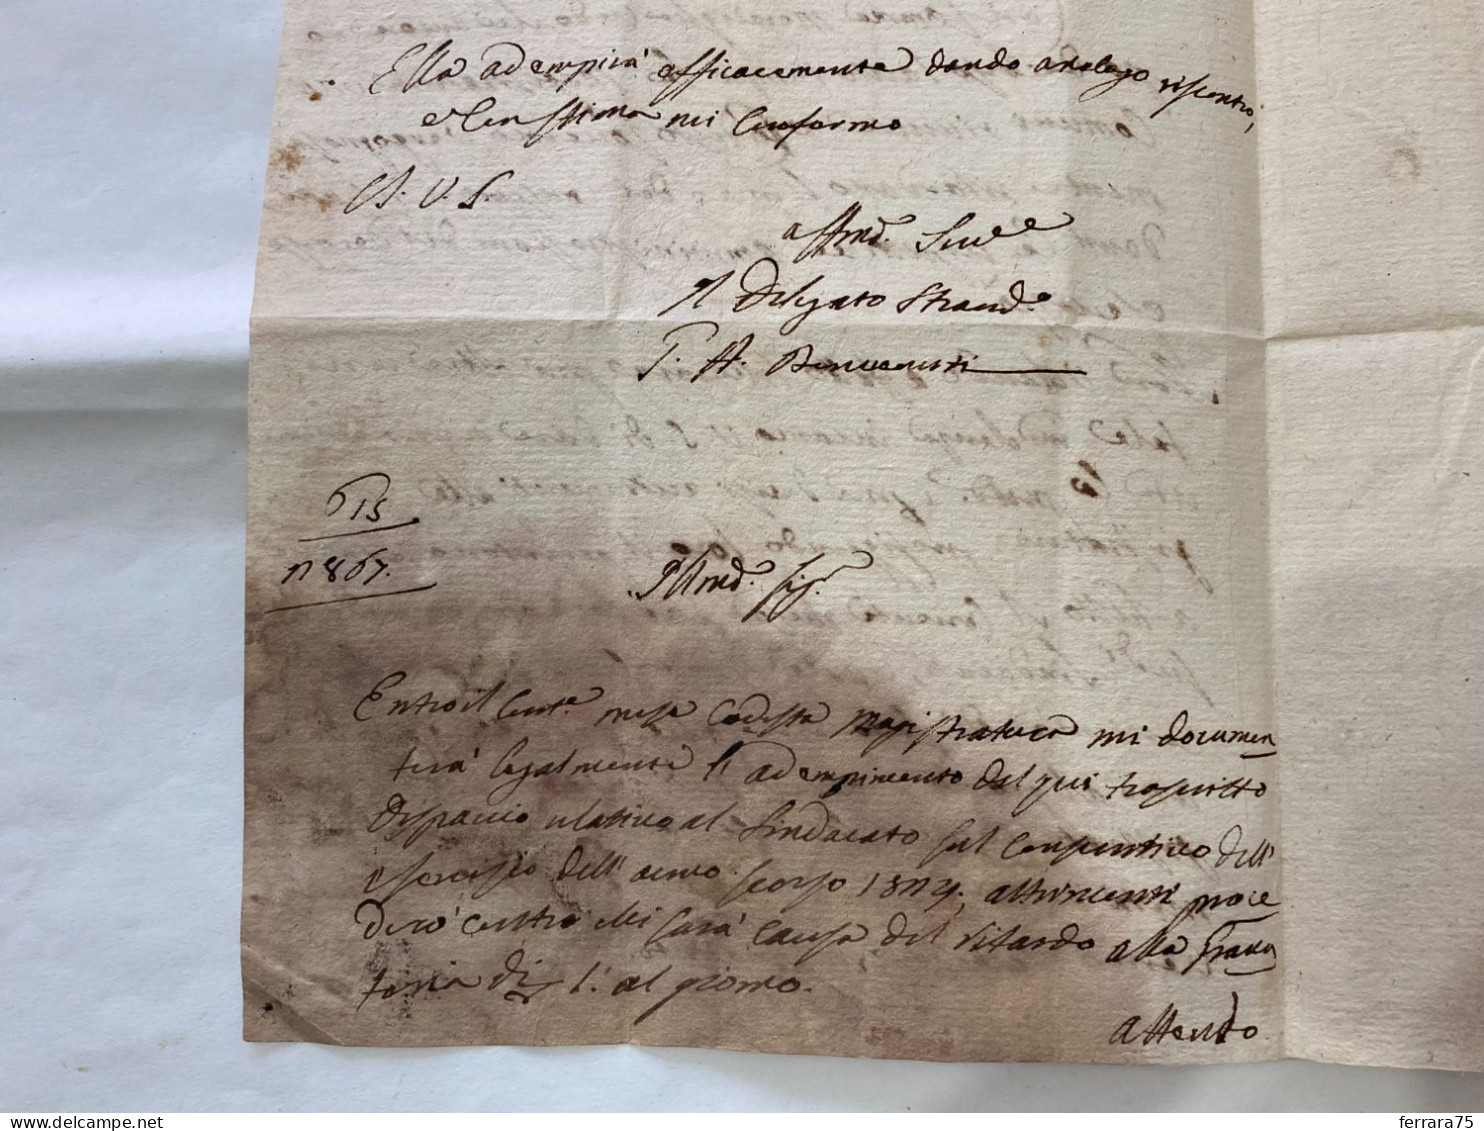 Ella adempirà efficacemente dando analogo riscontro,
e con stima mi confermo
Di V. S.
Affmo. Serve
Il Delegato Straord.o
P. A. Benvenuti
615
n 867.
Illmo. Sig.r
Entro il Cente mese codesta Magistratura mi documen
terà legalmente l'adempimento del qui trascritto
Dispaccio relativo al Sindacato sul Consuntivo dell'
esercizio dell'anno scorso 1824. altrimenti proce
derò contro chi sarà causa del ritardo alla
di 1. al giorno.
Attendo
ferrara75